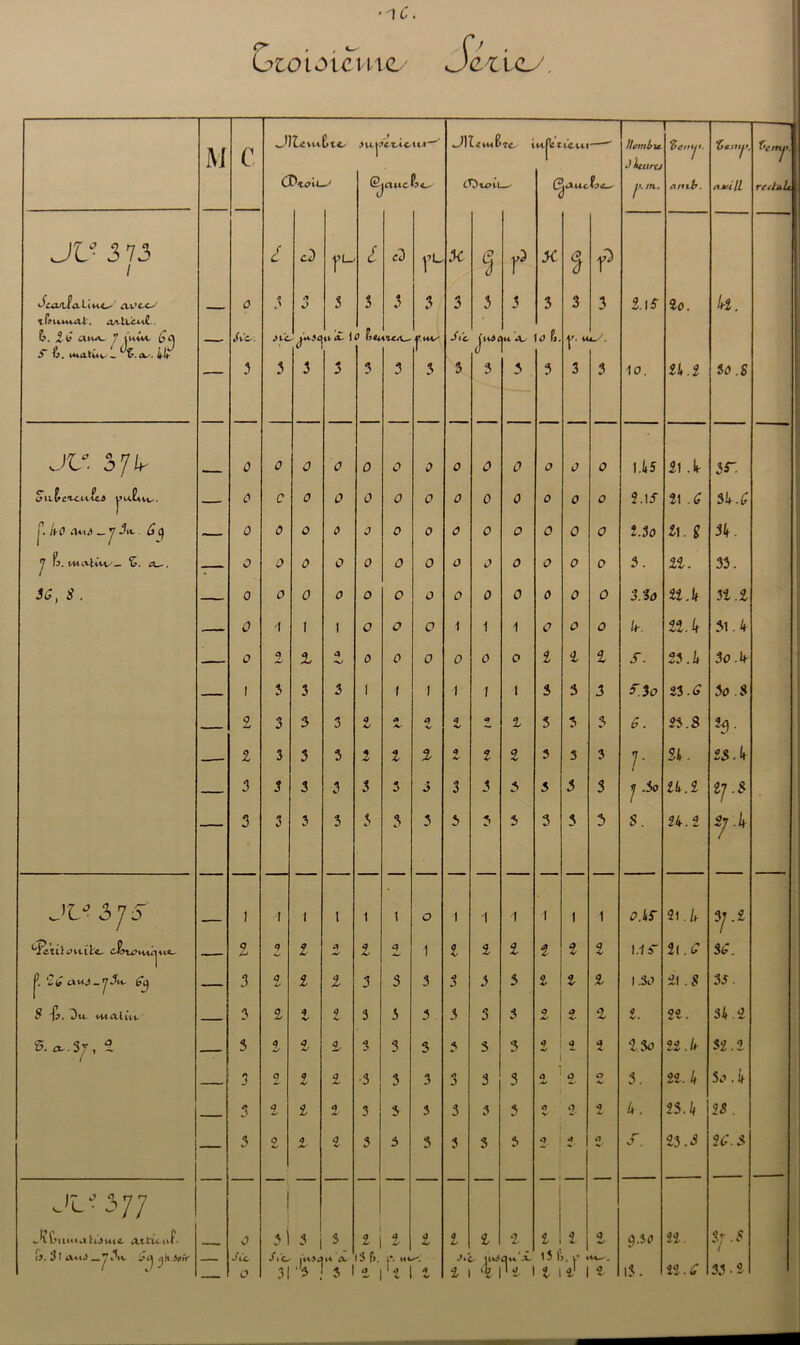 Troisième Série.
M C Membre supérieur Membre inférieur Nombre d'heures p. m. Temp. amb. Temp. axill. Temp. rectale
Droit Gauche Droit Gauche
l c) pL l c) pL x g p x g p
N° 373
Scarlatine avec 0 3 3 3 3 3 3 3 3 3 3 3 3 2.15 20. 42.
rhumat. articul.
Sic. Sic jusqu'à 10 heures p. m. Sic jusqu'à 10 h. p. m.
5 h. matin _ T. a. 3 3 3 3 3 3 3 3 3 3 3 3 3 10. 24.2 30.8
N° 374 0 0 0 0 0 0 0 0 0 0 0 0 0 1.45 21.4 35.
Tubercules pulm. 0 0 0 0 0 0 0 0 0 0 0 0 0 2.15 21.6 34.6
f. 40 ans _ 7 Ju. 69 0 0 0 0 0 0 0 0 0 0 0 0 0 2.30 21.8 34.
7 h. matin _ T. a. 0 0 0 0 0 0 0 0 0 0 0 0 0 3. 22. 33.
36,8. 0 0 0 0 0 0 0 0 0 0 0 0 0 3.30 22.4 32.2
0 1 1 1 0 0 0 1 1 1 0 0 0 4. 22.4 31.4
0 2 2 2 0 0 0 0 0 0 2 2 2 5. 23.4 30.4
1 3 3 3 1 1 1 1 1 1 3 3 3 5.30 23.6 30.8
2 3 3 3 2 2 2 2 2 2 3 3 3 6. 23.8 29.
2 3 3 3 2 2 2 2 2 2 3 3 3 7. 24. 28.4
3 3 3 3 3 3 3 3 3 3 3 3 3 7.30 24.2 27.8
3 3 3 3 3 3 3 3 3 3 3 3 3 8. 24.2 27.4
N° 375 1 1 1 1 1 1 0 1 1 1 1 1 1 0.45 21.4 37.2
Péritonite chronique 2 2 2 2 2 2 1 2 2 2 2 2 2 1.15 21.6 36.
f. 26 ans _ 7 Ju. 69 3 2 2 2 3 3 3 3 3 3 2 2 2 1.30 21.8 35.
8 h. Du matin 3 2 2 2 3 3 3 3 3 3 2 2 2 2. 22. 34.2
T. a. 37,2 3 2 2 2 3 3 3 3 3 3 2 2 2 2.30 22.4 32.2
3 2 2 2 3 3 3 3 3 3 2 2 2 3. 22.4 30.4
3 2 2 2 3 3 3 3 3 3 2 2 2 4. 23.4 28.
3 2 2 2 3 3 3 3 3 3 2 2 2 5. 23.8 26.8
N° 377
Rhumatisme articul. 0 3 3 3 2 2 2 2 2 2 2 2 2 9.30 22. 37.8
h. 31 ans _ 7 Ju. 69 9h soir Sic Sic jusqu'à 13 h. p. m. Sic jusqu'à 13 h. p. m.
0 3 3 3 2 2 2 2 2 2 2 2 2 13. 22.6 33.2